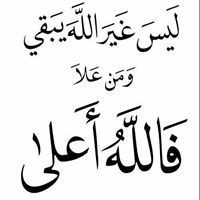 لَيْسَ غَيْرَ اللَّهِ يَبْقِي
وَمَن عَلَا
فَاللَّهُ أَعلىٰ